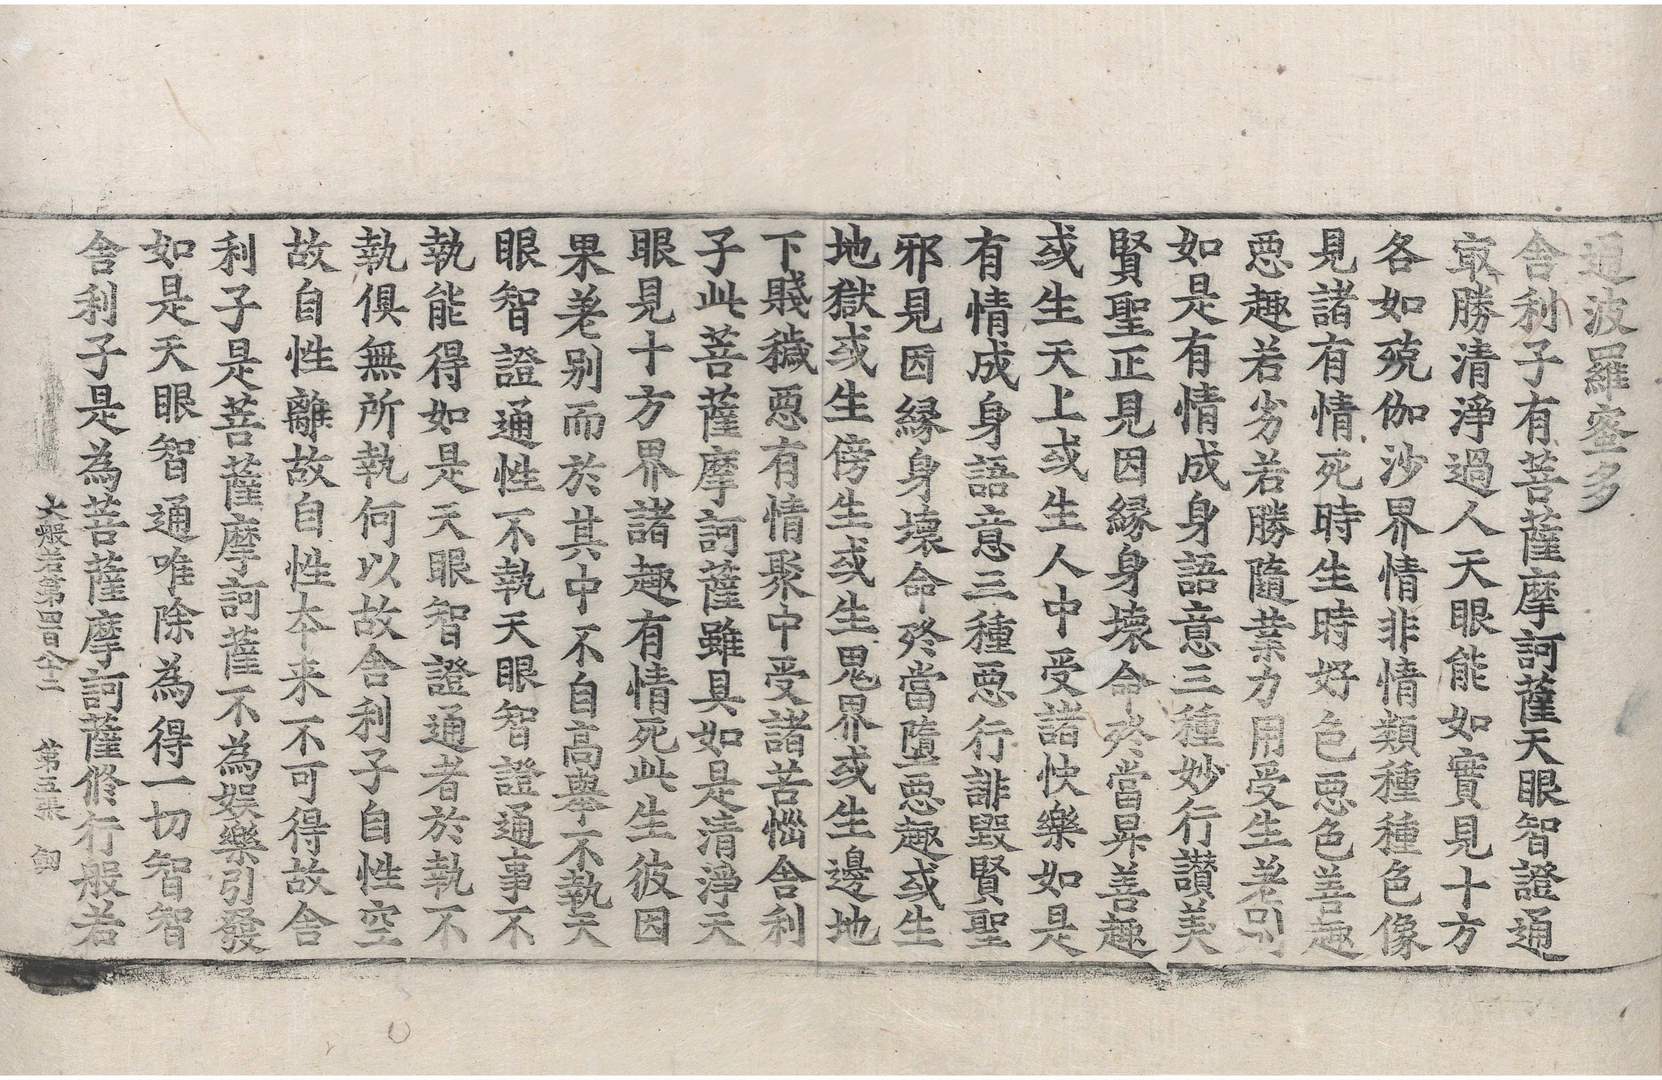 通波羅蜜多
舍利子有菩薩摩訶薩天眼智證通
㝡勝清淨過人天眼能如實見十方
各如殑伽沙界情非情類種種色像
見諸有情死時生時好色惡色善趣
惡趣若劣若勝隨業力用受生差別
如是有情成身語意三種妙行讃美
賢聖正見因緣身壞命終當昇善趣
或生天上或生人中受諸快樂如是
有情成身語意三種惡行誹毀賢聖
邪見因緣身壞命終當墮惡趣或生
地獄或生傍生或生鬼界或生邊地
下賤穢惡有情聚中受諸苦惱舍利
子此菩薩摩訶薩雖具如是清淨天
眼見十方界諸趣有情死此生彼因
果差別而於其中不自高舉不執天
眼智證通性不執天眼智證通事不
執能得如是天眼智證通者於執不
執俱無所執何以故舍利子自性空
故自性離故自性本来不可得故舍
利子是菩薩摩訶薩不為娱樂引發
如是天眼智通唯除為得一切智智
舍利子是為菩薩摩訶薩修行般若
大般若第四百全二 第五張 劒